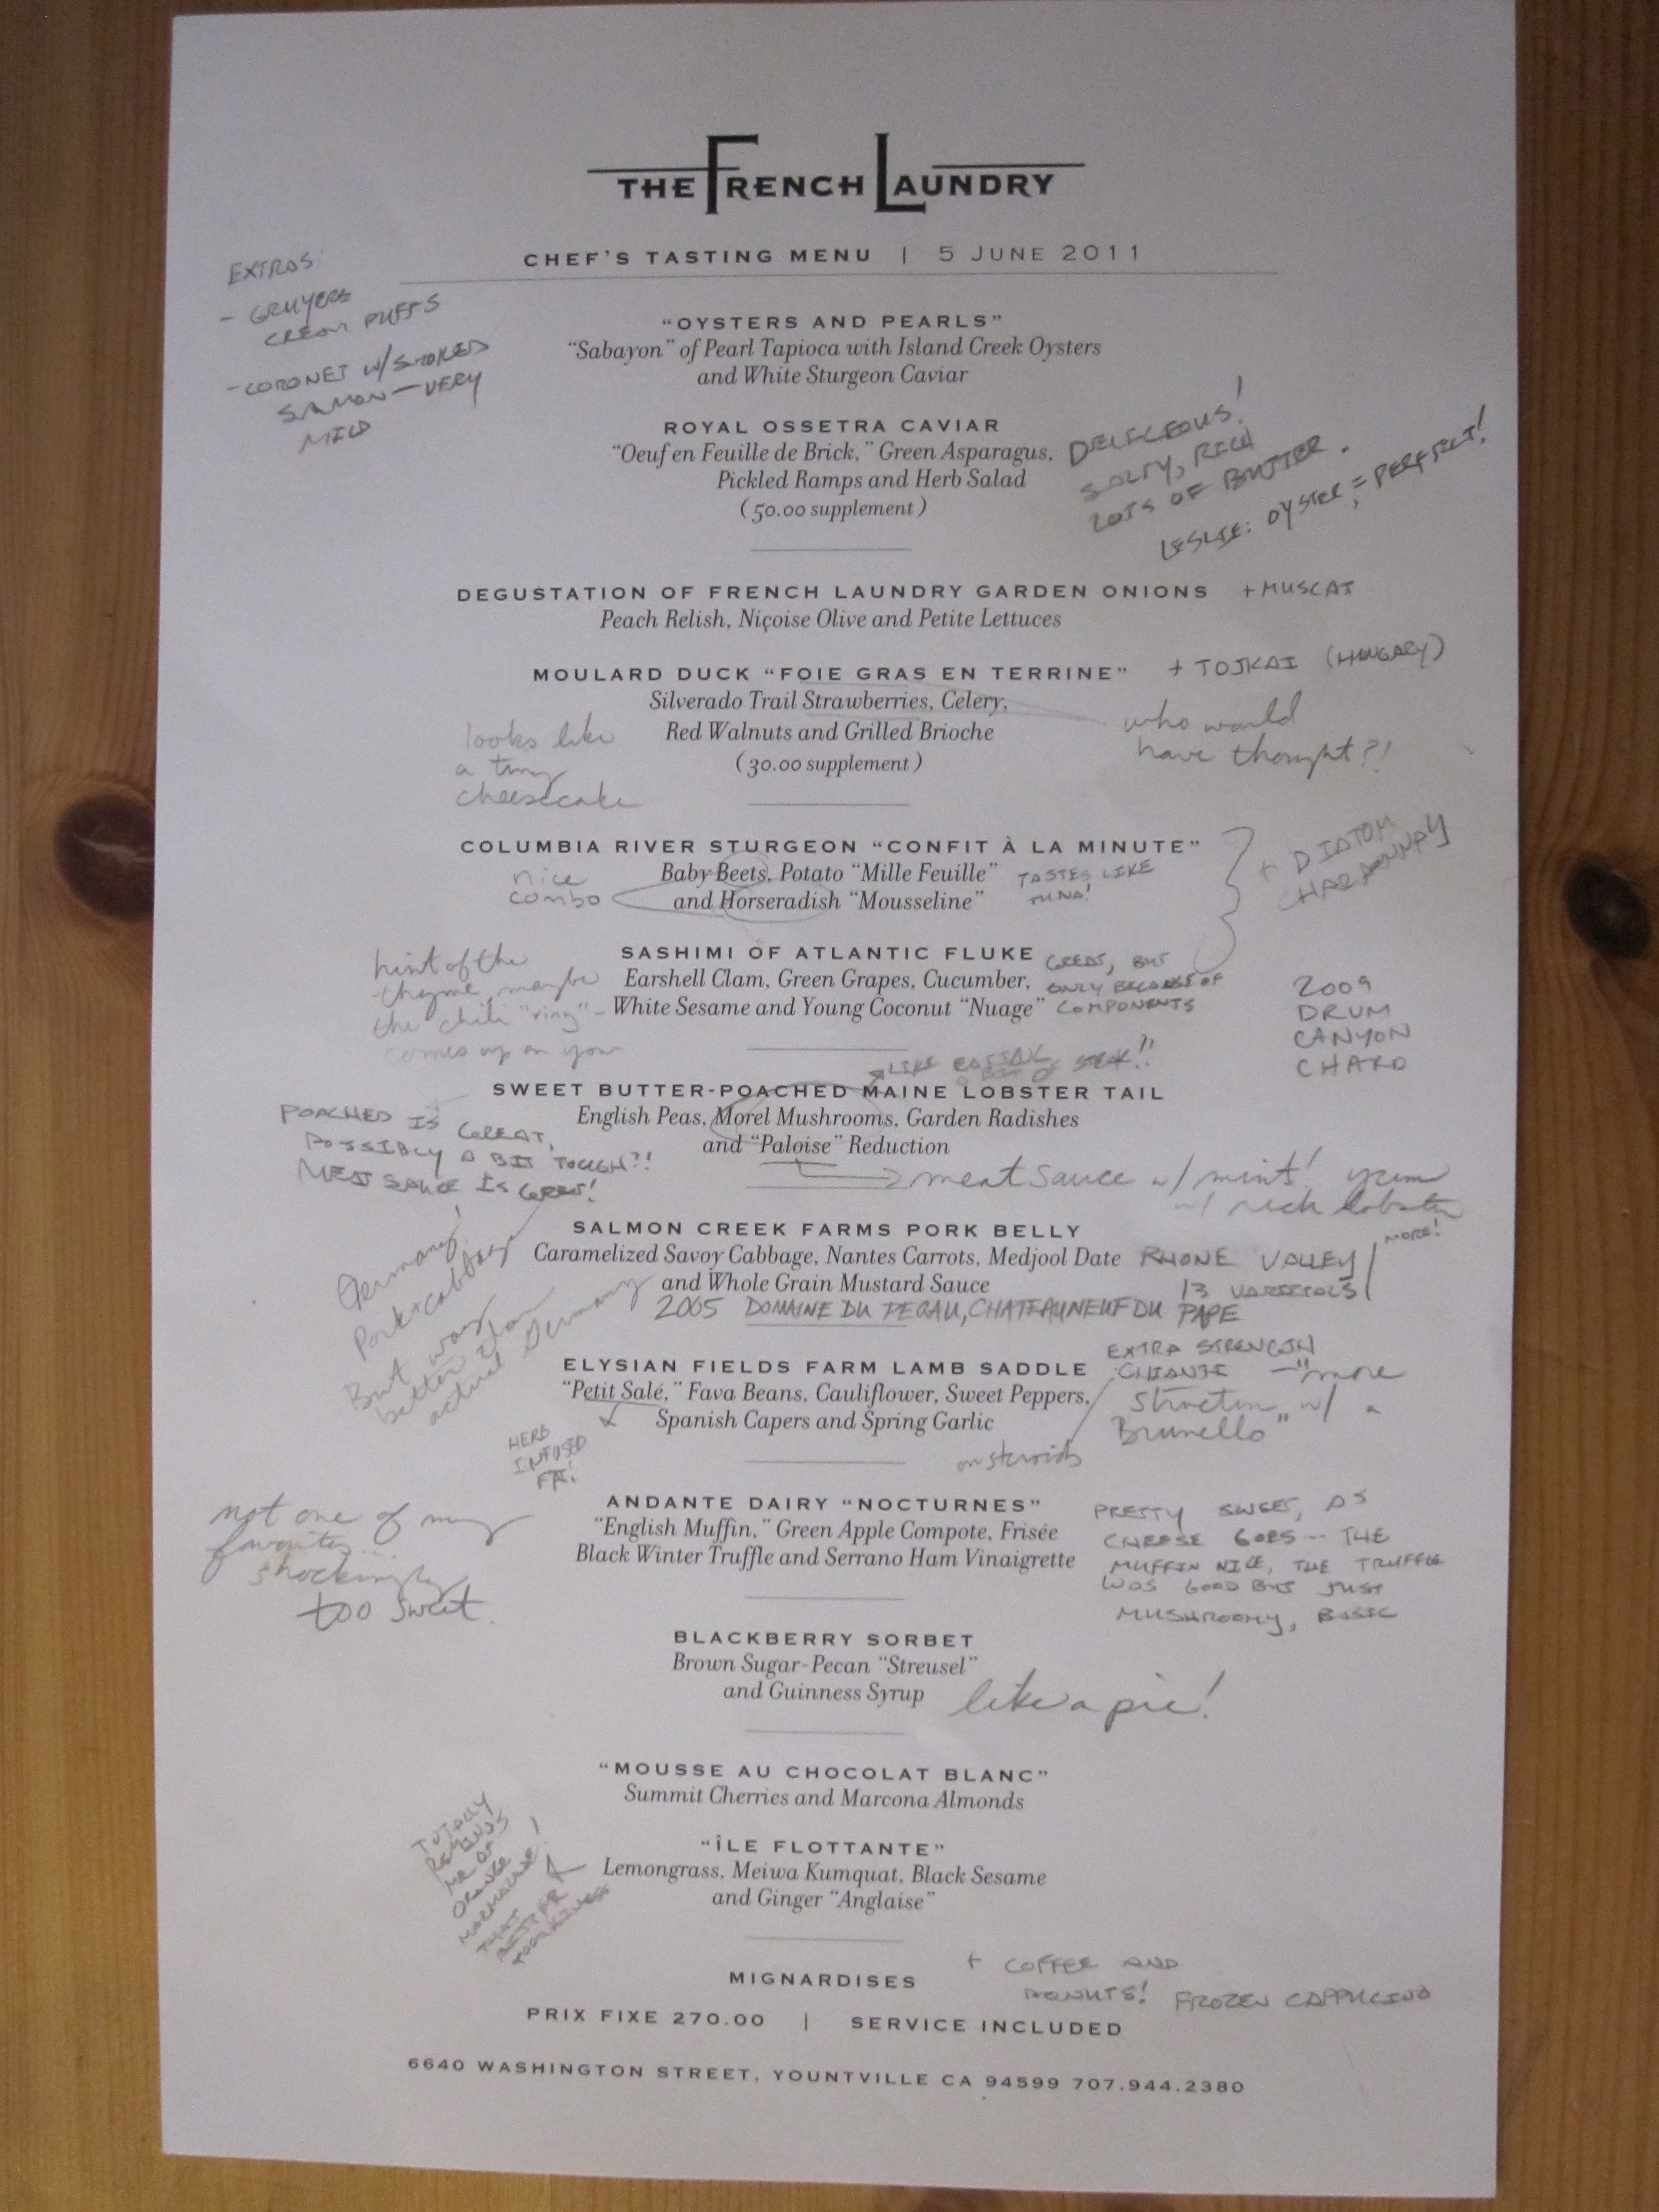 THE FRENCH LAUNDRY
CHEF'S TASTING MENU | 5 JUNE 2011
EXTRAS:
- GRUYERE
CREAM PUFFS
- CORONET W/ SMOKED
SALMON — VERY
MILD
"OYSTERS AND PEARLS"
"Sabayon" of Pearl Tapioca with Island Creek Oysters
and White Sturgeon Caviar
ROYAL OSSETRA CAVIAR
"Oeuf en Feuille de Brick," Green Asparagus,
Pickled Ramps and Herb Salad
(50.00 supplement)
DELICEOUS!
SALTY, RICH
LOTS OF BUTTER.
LESLIE: OYSTER = PERFECT!
DEGUSTATION OF FRENCH LAUNDRY GARDEN ONIONS
+ MUSCAT
Peach Relish, Niçoise Olive and Petite Lettuces
MOULARD DUCK "FOIE GRAS EN TERRINE"
+ TOJKAI (HUNGARY)
Silverado Trail Strawberries, Celery,
Red Walnuts and Grilled Brioche
(30.00 supplement)
who would
have thought?!
looks like
a tiny
cheesecake
COLUMBIA RIVER STURGEON "CONFIT À LA MINUTE"
Baby Beets, Potato "Mille Feuille"
and Horseradish "Mousseline"
nice
combo
TASTES LIKE
TUNA!
+ DIATOM
CHARDONNAY
SASHIMI OF ATLANTIC FLUKE
Earshell Clam, Green Grapes, Cucumber,
White Sesame and Young Coconut "Nuage"
GREAT, BUT
ONLY BECAUSE OF
COMPONENTS
hint of the
thyme, maybe
the chili "ring" -
comes up on you
2009
DRUM
CANYON
CHARD
LIKE EATING
A BIT OF STEAK!!
SWEET BUTTER-POACHED MAINE LOBSTER TAIL
English Peas, Morel Mushrooms, Garden Radishes
and "Paloise" Reduction
POACHED IS GREAT,
POSSIBLY A BIT TOUGH?!
MEAT SAUCE IS GREAT!
meat sauce w/ mint! yum
w/ rich lobster
SALMON CREEK FARMS PORK BELLY
Caramelized Savoy Cabbage, Nantes Carrots, Medjool Date
and Whole Grain Mustard Sauce
RHONE VALLEY
13 VARIETALS
MORE!
2005 DOMAINE DU PEGAU, CHATEAUNEUF DU PAPE
Germany!
Pork + cabbage
But way
better than
actual Germany
ELYSIAN FIELDS FARM LAMB SADDLE
"Petit Salé," Fava Beans, Cauliflower, Sweet Peppers,
Spanish Capers and Spring Garlic
EXTRA STRENGTH
CHIANTI - "more
structure w/ a
Brunello"
on steroids
HERB
INFUSED
FAT!
ANDANTE DAIRY "NOCTURNES"
"English Muffin," Green Apple Compote, Frisée
Black Winter Truffle and Serrano Ham Vinaigrette
not one of my
favorites...
shockingly
too sweet.
PRETTY SWEET, AS
CHEESE GOES... THE
MUFFIN NICE, THE TRUFFLE
WAS GOOD BUT JUST
MUSHROOMY, BASIC
BLACKBERRY SORBET
Brown Sugar-Pecan "Streusel"
and Guinness Syrup
like a pie!
"MOUSSE AU CHOCOLAT BLANC"
Summit Cherries and Marcona Almonds
"ÎLE FLOTTANTE"
Lemongrass, Meiwa Kumquat, Black Sesame
and Ginger "Anglaise"
TOTALLY
REMINDS
ME OF
ORANGE
MARMALADE!
THAT
BITTER
MIGNARDISES
+ COFFEE AND
DONUTS! FROZEN CAPPUCINO
PRIX FIXE 270.00 | SERVICE INCLUDED
6640 WASHINGTON STREET, YOUNTVILLE CA 94599 707.944.2380